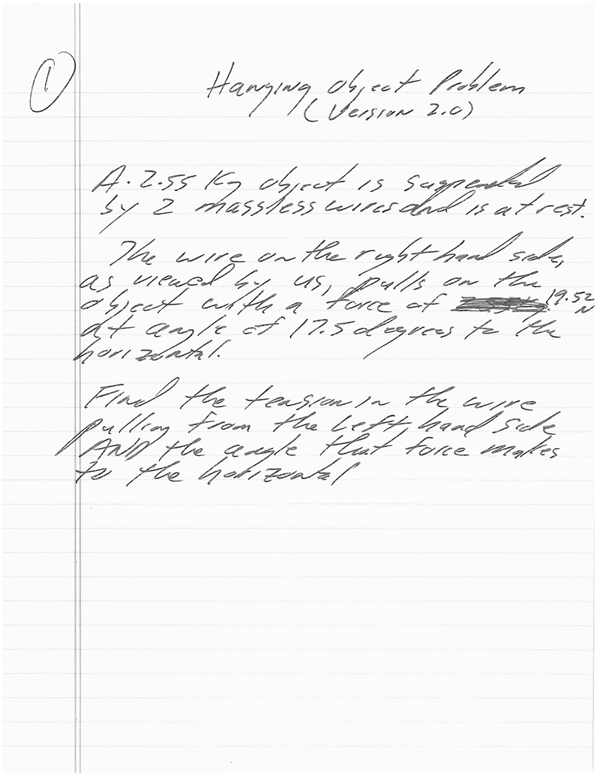 1
Hanging Object Problem
(Version 2.0)
A 2.55 Kg object is suspended
by 2 massless wires and is at rest.
The wire on the right hand side,
as viewed by us, pulls on the
object with a force of 19.52 N
at angle of 17.5 degrees to the
horizontal.
Find the tension in the wire
pulling from the left hand side
AND the angle that force makes
to the horizontal